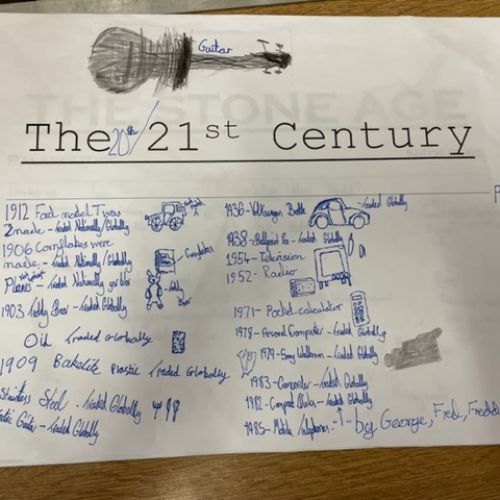 Guitar
The 20th/21st Century
1912 Ford model T was
made - traded Nationally/Globally
1906 Cornflakes were
made - traded Nationally/Globally
Cornflakes
Planes - traded Nationally
1903 Teddy Bear - traded Globally
Oil traded Globally
1909 Bakelite Plastic traded Globally
Stainless Steel . traded Globally
Guitar - traded Globally
1936 - Volkswagon Beetle - traded Globally
1938 - Ballpoint Pen - traded Globally
1954 - Television
1952 - Radio
1971 - Pocket calculator
1978 - Personal Computer - traded Globally
1979 - Sony Walkman - traded Globally
1983 - Camcorder - traded Globally
1982 - Compact Disks - traded Globally
1985 - Mobile Telephones -
by George, Fred, Fredd
THE STONE AGE